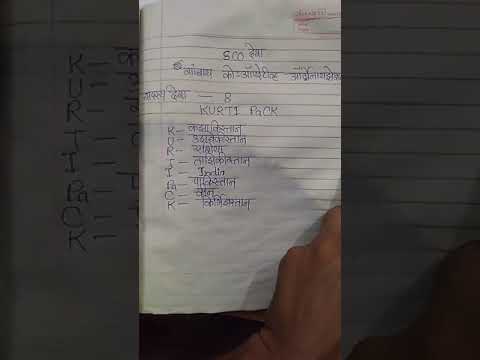 SCO देश
शांघाय को-ऑपरेटिव्ह ऑर्गनायझेशन
सदस्य देश — 8
KURTI PACK
K — कझाकिस्तान
U — उझबेकिस्तान
R — रशिया
T — ताझिकिस्तान
I — India
PA — पाकिस्तान
C — चीन
K — किर्गिझस्तान